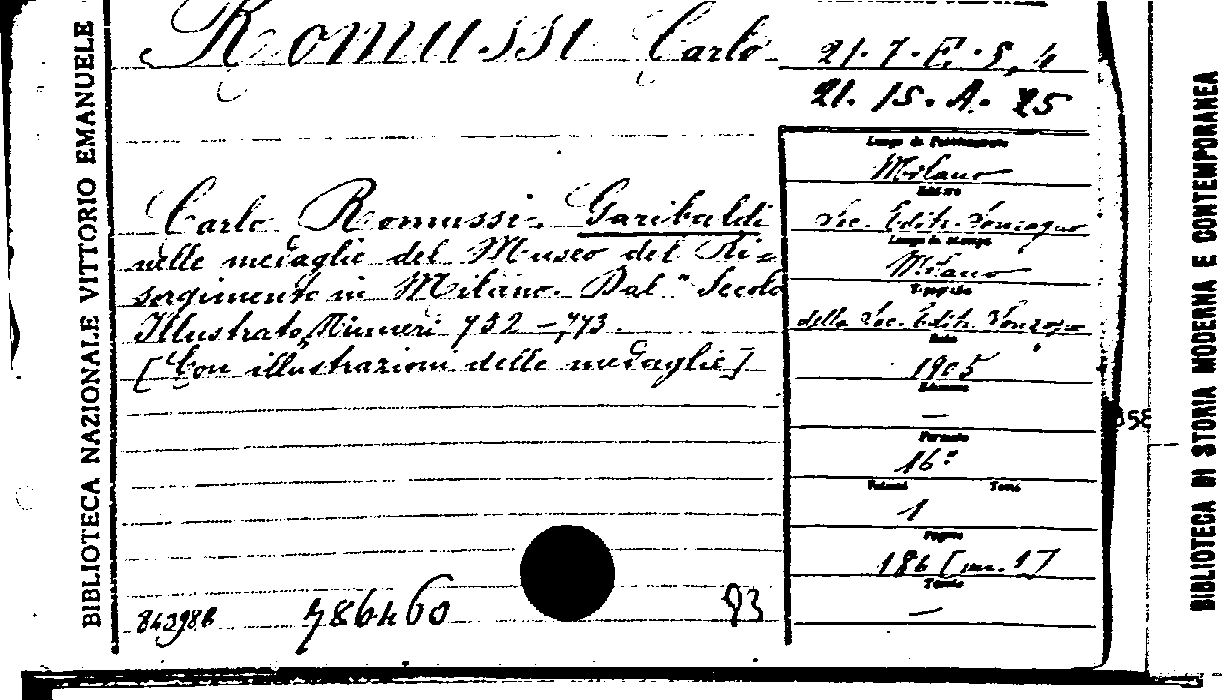 BIBLIOTECA NAZIONALE VITTORIO EMANUELE
Romussi Carlo
21. 7. E. 5, 4
21. 15. A. 25
Carlo Romussi. Garibaldi
nelle medaglie del Museo del Ri=
sorgimento in Milano. Dal "Secolo
Illustrato" Numeri 732 - 773.
[Con illustrazioni delle medaglie]
Milano
Editore
Soc. Edit. Sonzogno
Luogo di stampa
Milano
Tipografia
della Soc. Edit. Sonzogno
Data
1905
Edizione
—
Formato
16º
Volumi Tomi
1
Pagine
186 [nn. 1]
Tavole
—
93
BIBLIOTECA DI STORIA MODERNA E CONTEMPORANEA